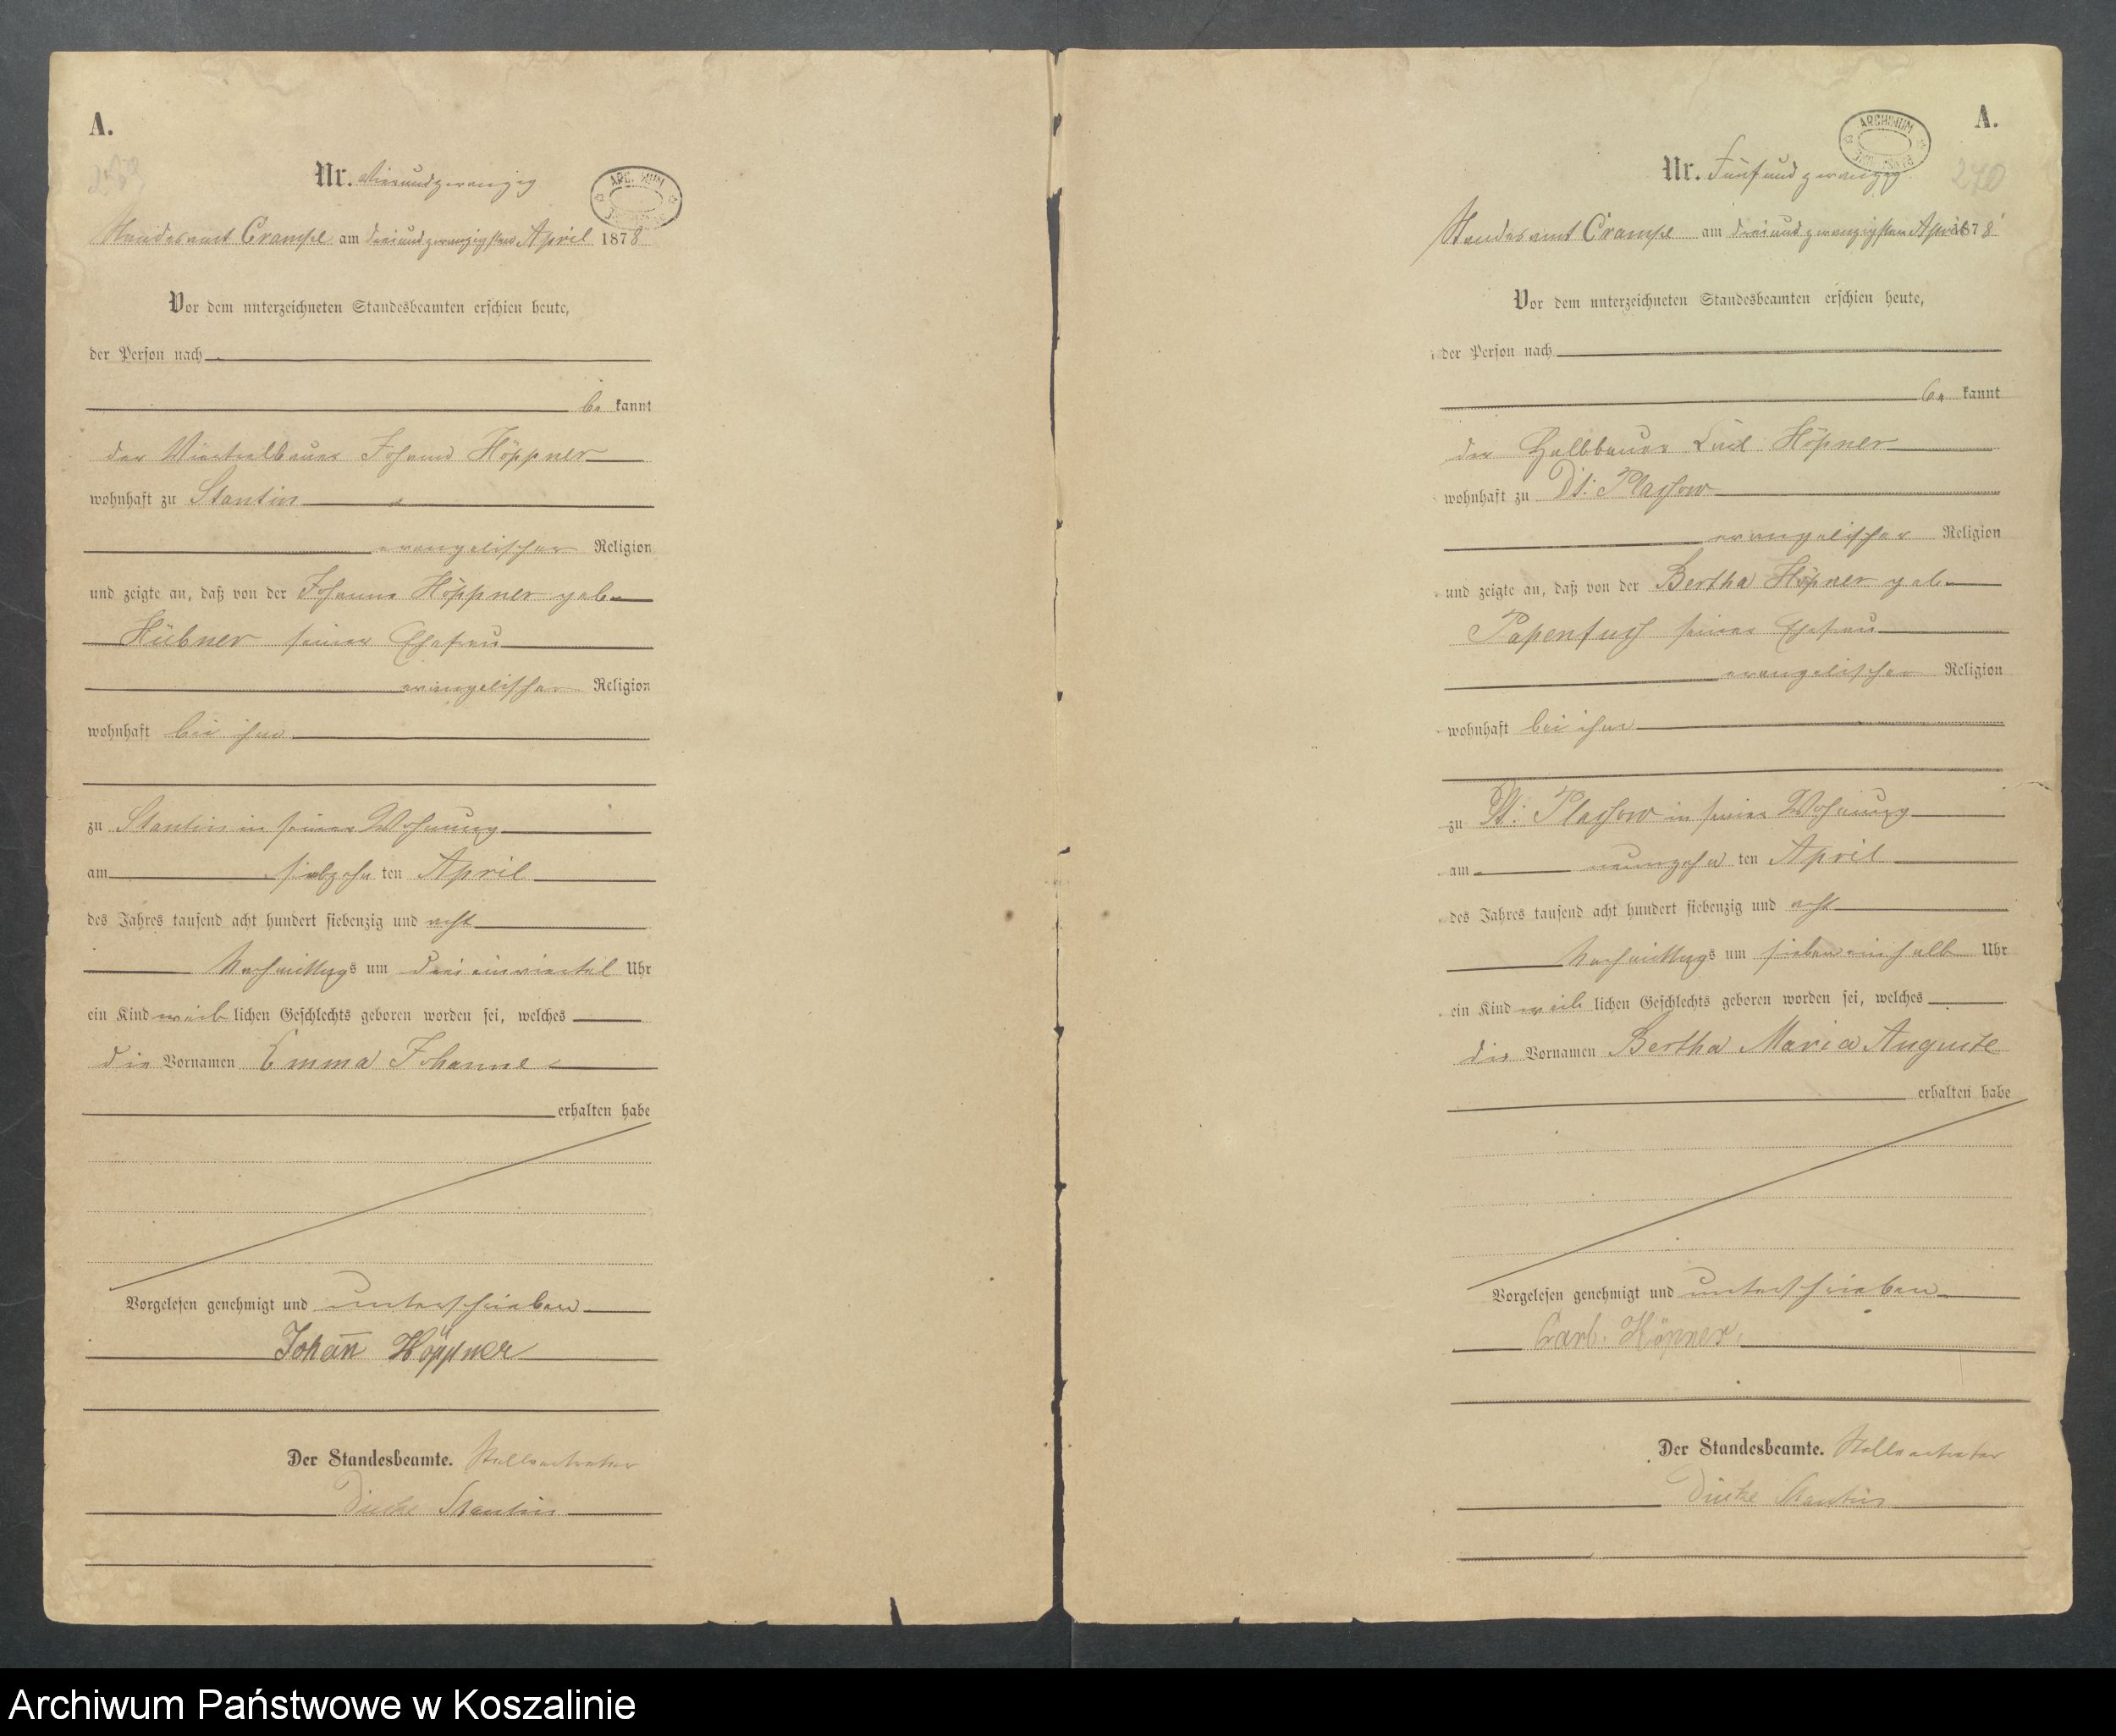 A.
Nr. Vierundzwanzig
ARCHIWUM
Standesamt Crampe am dreiundzwanzigsten April 1878
Vor dem unterzeichneten Standesbeamten erschien heute,
der Person nach
be kannt
der Viertelbauer Johann Höppner
wohnhaft zu Stantin
evangelischer Religion
und zeigte an, daß von der Johanne Höppner geb.
Hübner seiner Ehefrau
evangelischer Religion
wohnhaft bei ihm
zu Stantin in seiner Wohnung
am siebzehn ten April
des Jahres tausend acht hundert siebenzig und acht
Nachmittags um drei einviertel Uhr
ein Kind weib lichen Geschlechts geboren worden sei, welches
die Vornamen Emma Johanne
erhalten habe
Vorgelesen genehmigt und unterschrieben
Johan̅ Höppner
Der Standesbeamte. Stellvertreter
Stantin
A.
ARCHIWUM
270
Nr. Fünfundzwanzig
Standesamt Crampe am dreiundzwanzigsten April 1878
Vor dem unterzeichneten Standesbeamten erschien heute,
der Person nach
be kannt
der Halbbauer Höpner
wohnhaft zu Dt: Plassow
evangelischer Religion
und zeigte an, daß von der Bertha Höpner geb.
Papenfuß seiner Ehefrau
evangelischer Religion
wohnhaft bei ihm
zu Dt: Plassow in seiner Wohnung
am neunzehn ten April
des Jahres tausend acht hundert siebenzig und acht
Nachmittags um sieben einhalb Uhr
ein Kind weib lichen Geschlechts geboren worden sei, welches
die Vornamen Bertha Maria Auguste
erhalten habe
Vorgelesen genehmigt und unterschrieben
Carl. Höpner.
Der Standesbeamte. Stellvertreter
Stantin
Archiwum Państwowe w Koszalinie